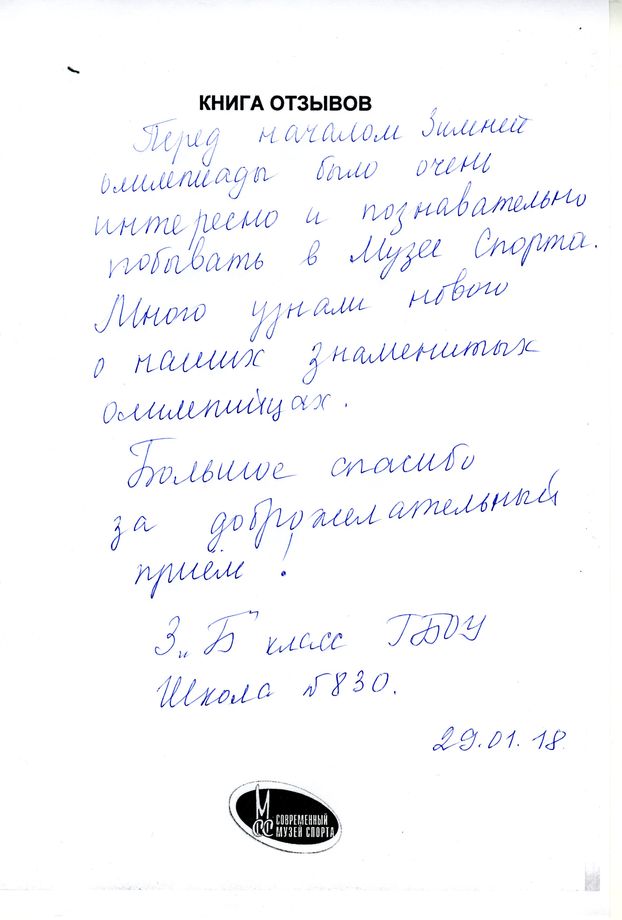 КНИГА ОТЗЫВОВ
Перед началом Зимней
олимпиады было очень
интересно и познавательно
побывать в Музее Спорта.
Много узнали нового
о наших знаменитых
олимпийцах.
Большое спасибо
за доброжелательный
приём!
3 „Б" класс ГБОУ
Школа №830.
29.01.18
М
СС
СОВРЕМЕННЫЙ
МУЗЕЙ СПОРТА